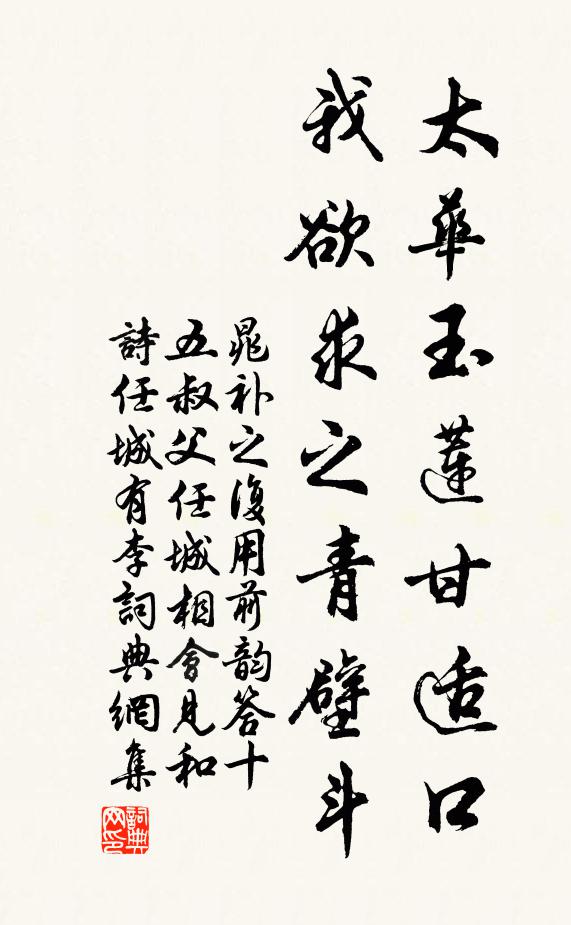 太華玉蓮甘适口
我欲求之青壁斗
晁补之復用前韵答十
五叔父任城相會見和
詩任城有李詞典網集
詞典
网印